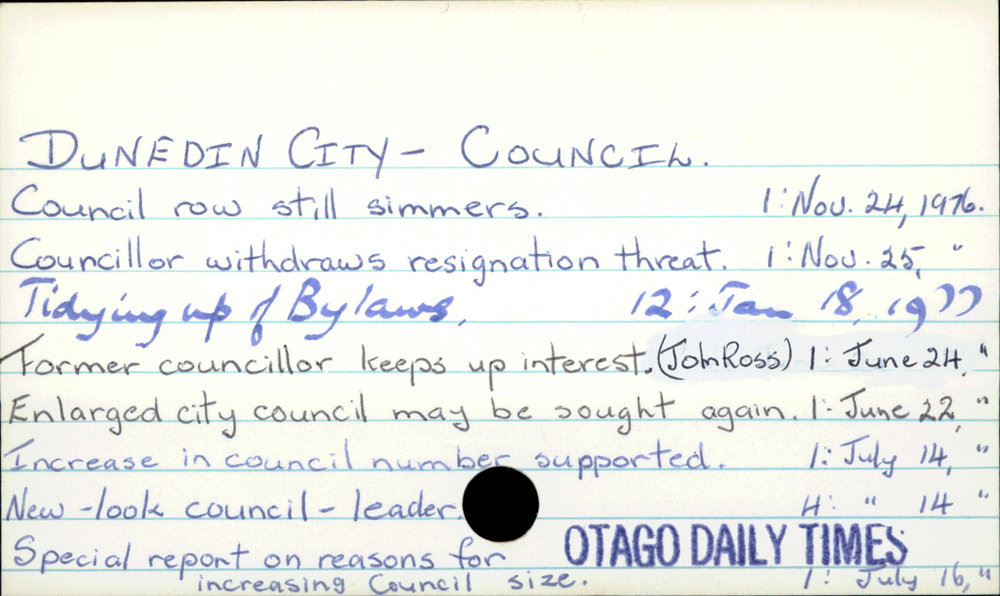 DUNEDIN CITY - COUNCIL.
Council row still simmers. 1: Nov. 24, 1976.
Councillor withdraws resignation threat. 1: Nov. 25, "
Tidying up of Bylaws. 12: Jan 18, 1977
Former councillor keeps up interest. (John Ross) 1: June 24, "
Enlarged city council may be sought again. 1: June 22, "
Increase in council number supported. 1: July 14, "
New-look council - leader. 4: " 14 "
Special report on reasons for OTAGO DAILY TIMES
increasing Council size. 1: July 16, "